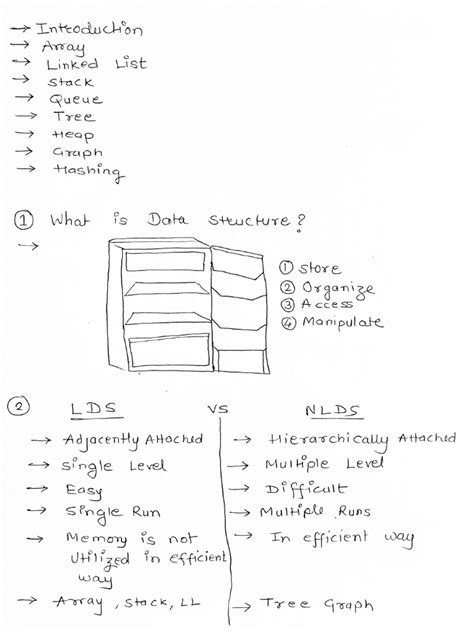 → Introduction
→ Array
→ Linked List
→ Stack
→ Queue
→ Tree
→ Heap
→ Graph
→ Hashing
① What is Data Structure?
→
① Store
② Organize
③ Access
④ Manipulate
② LDS vs NLDS
→ Adjacently Attached → Hierarchically Attached
→ Single Level → Multiple Level
→ Easy → Difficult
→ Single Run → Multiple Runs
→ Memory is not → In efficient way
Utilized in efficient
way
→ Array, Stack, LL → Tree Graph